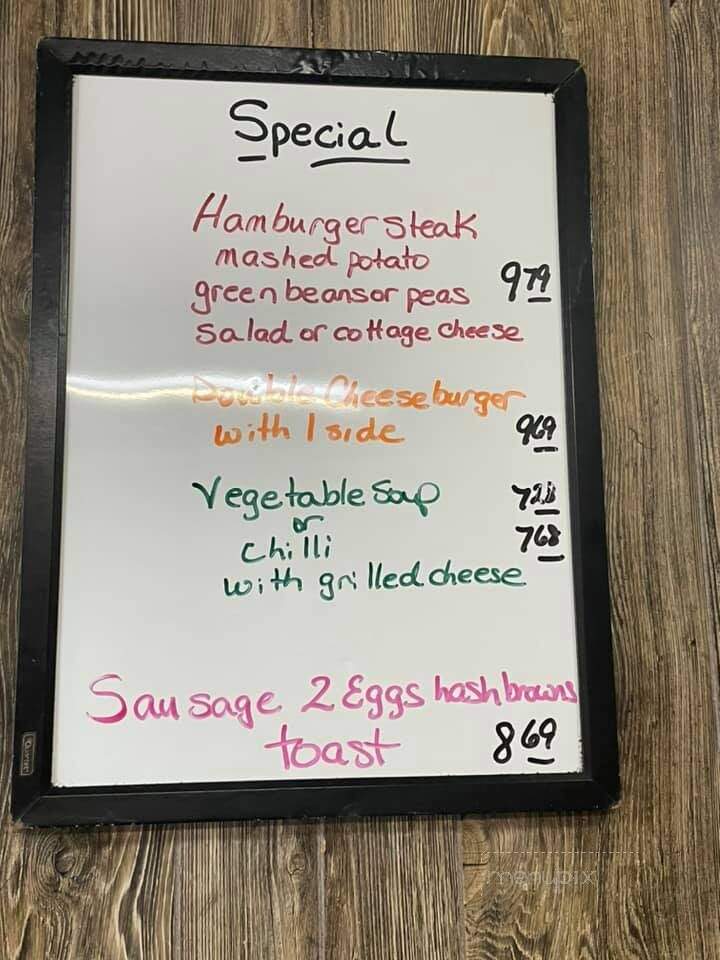 Special
Hamburger steak
mashed potato
green beans or peas 9 79
salad or cottage cheese
Double Cheeseburger
with 1 side 9 69
Vegetable Soup 7 28
or
Chilli 7 68
with grilled cheese
Sausage 2 Eggs hash browns
toast 8 69
menupix